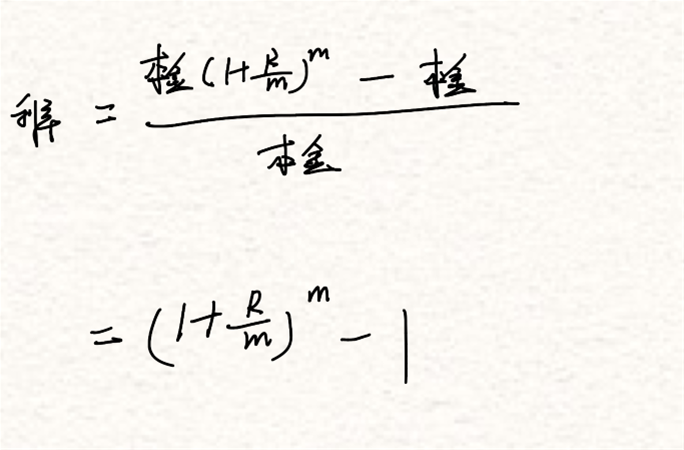 利率 = \frac{本金(1+\frac{R}{m})^m - 本金}{本金}
= (1+\frac{R}{m})^m - 1